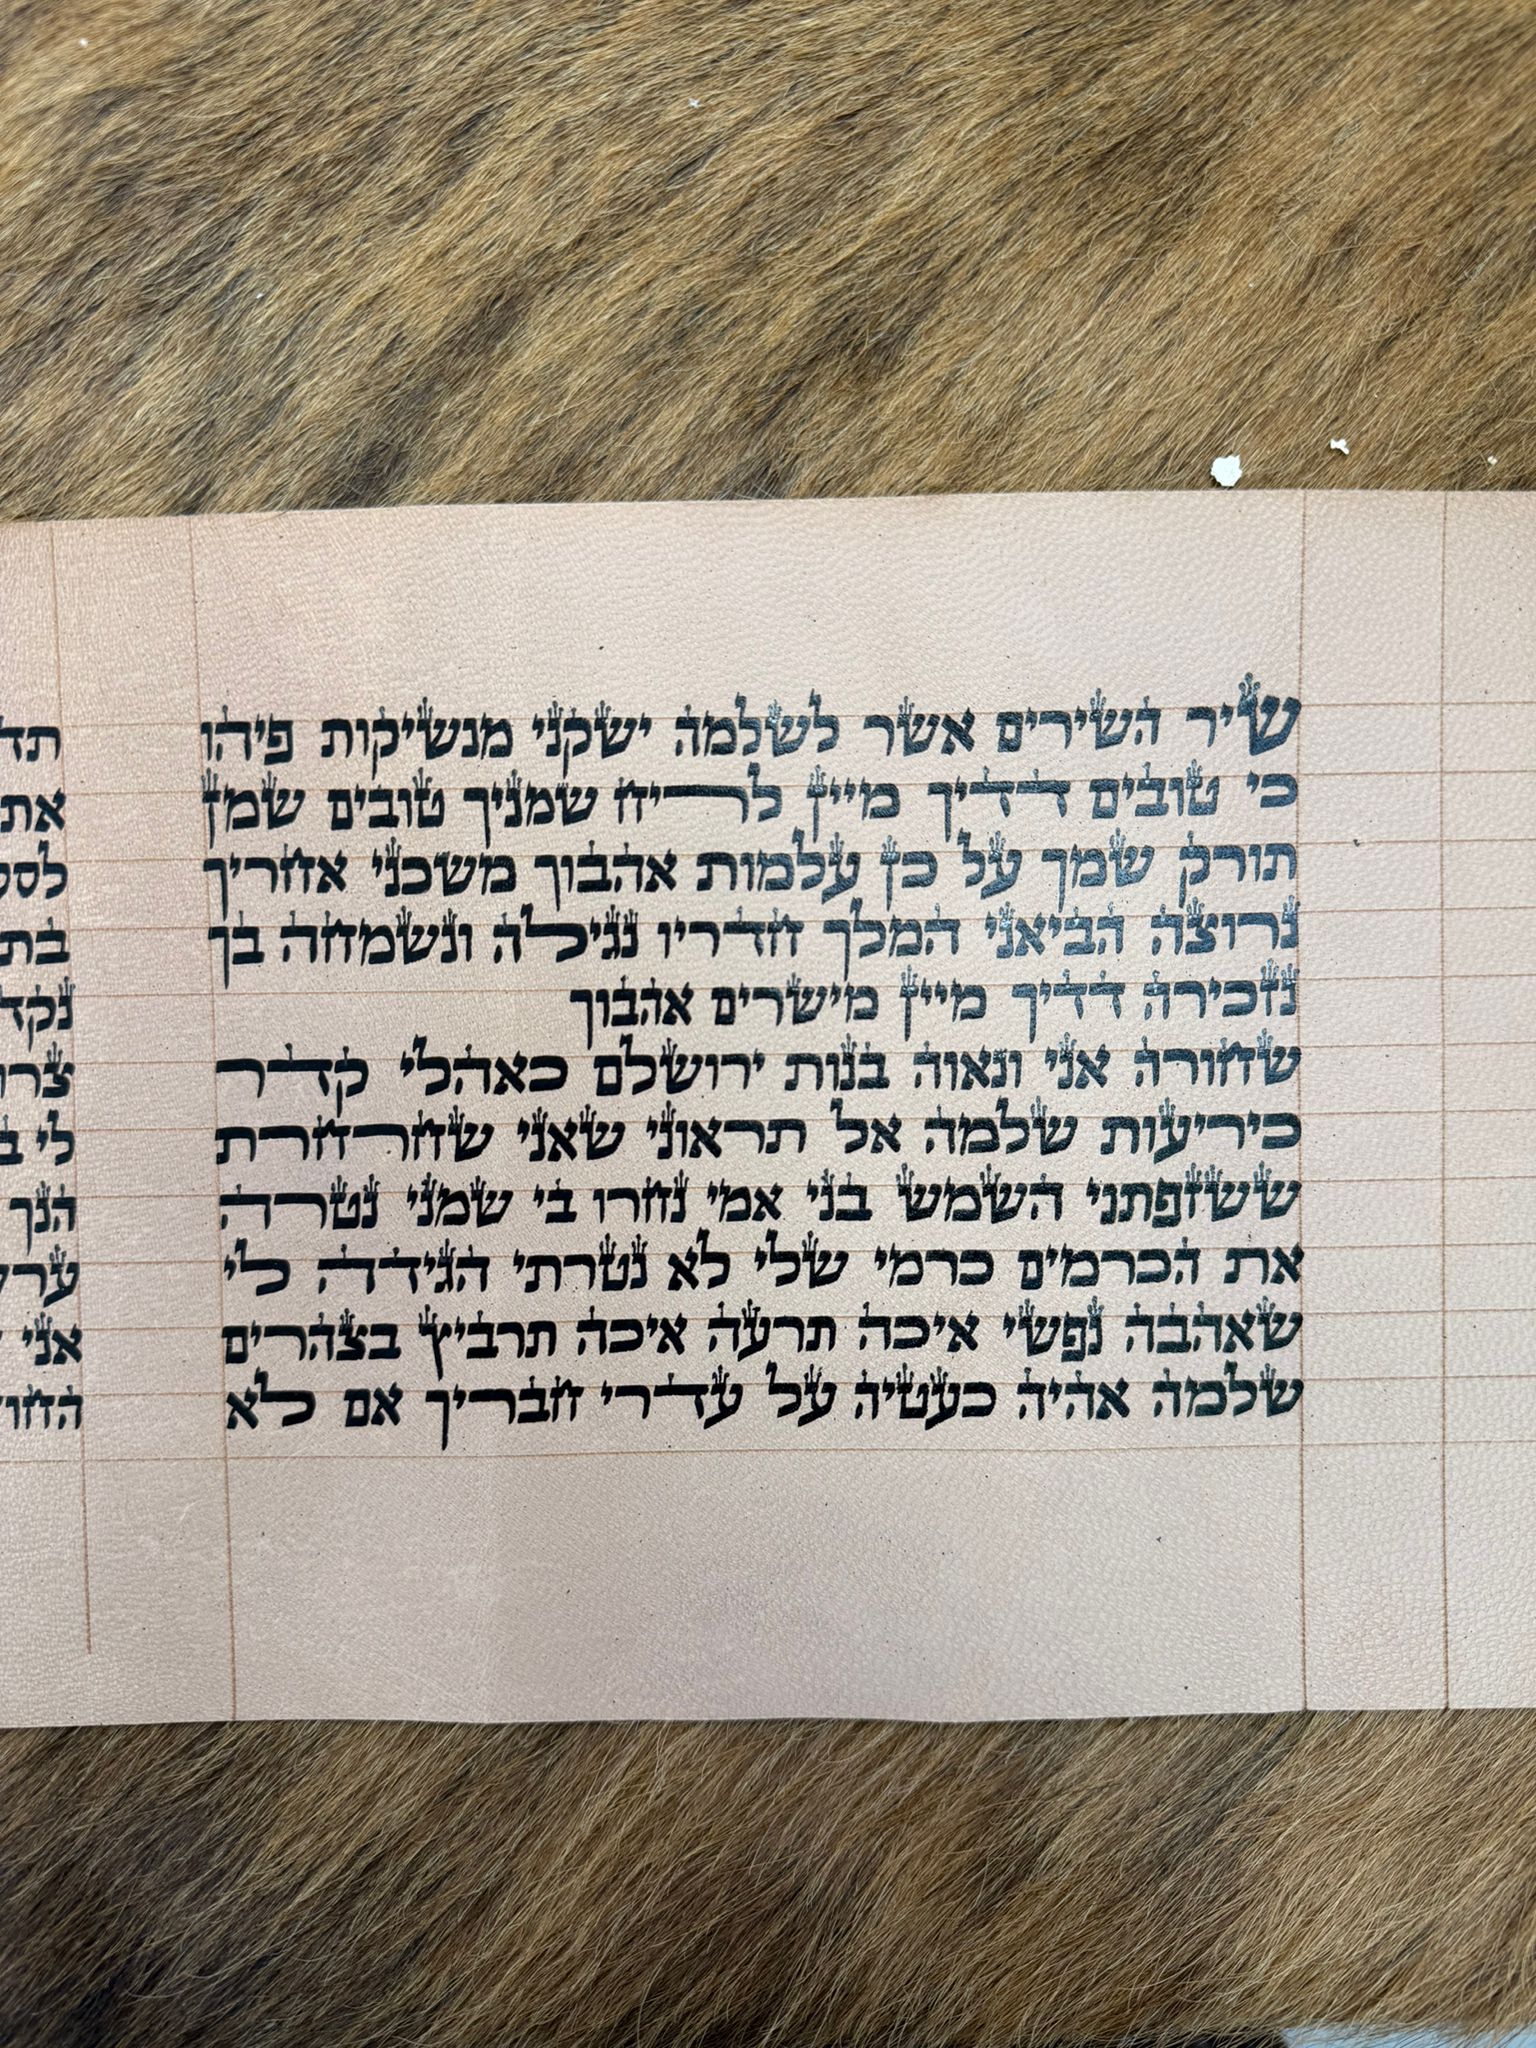 שיר השירים אשר לשלמה ישקני מנשיקות פיהו
כי טובים דדיך מיין לריח שמניך טובים שמן
תורק שמך על כן עלמות אהבוך משכני אחריך
נרוצה הביאני המלך חדריו נגילה ונשמחה בך
נזכירה דדיך מיין מישרים אהבוך
שחורה אני ונאוה בנות ירושלם כאהלי קדר
כיריעות שלמה אל תראוני שאני שחרחרת
ששזפתני השמש בני אמי נחרו בי שמני נטרה
את הכרמים כרמי שלי לא נטרתי הגידה לי
שאהבה נפשי איכה תרעה איכה תרביץ בצהרים
שלמה אהיה כעטיה על עדרי חבריך אם לא
תד
את
לסס
בת
נקד
צרו
לי ב
הנך
ערש
אני
החו